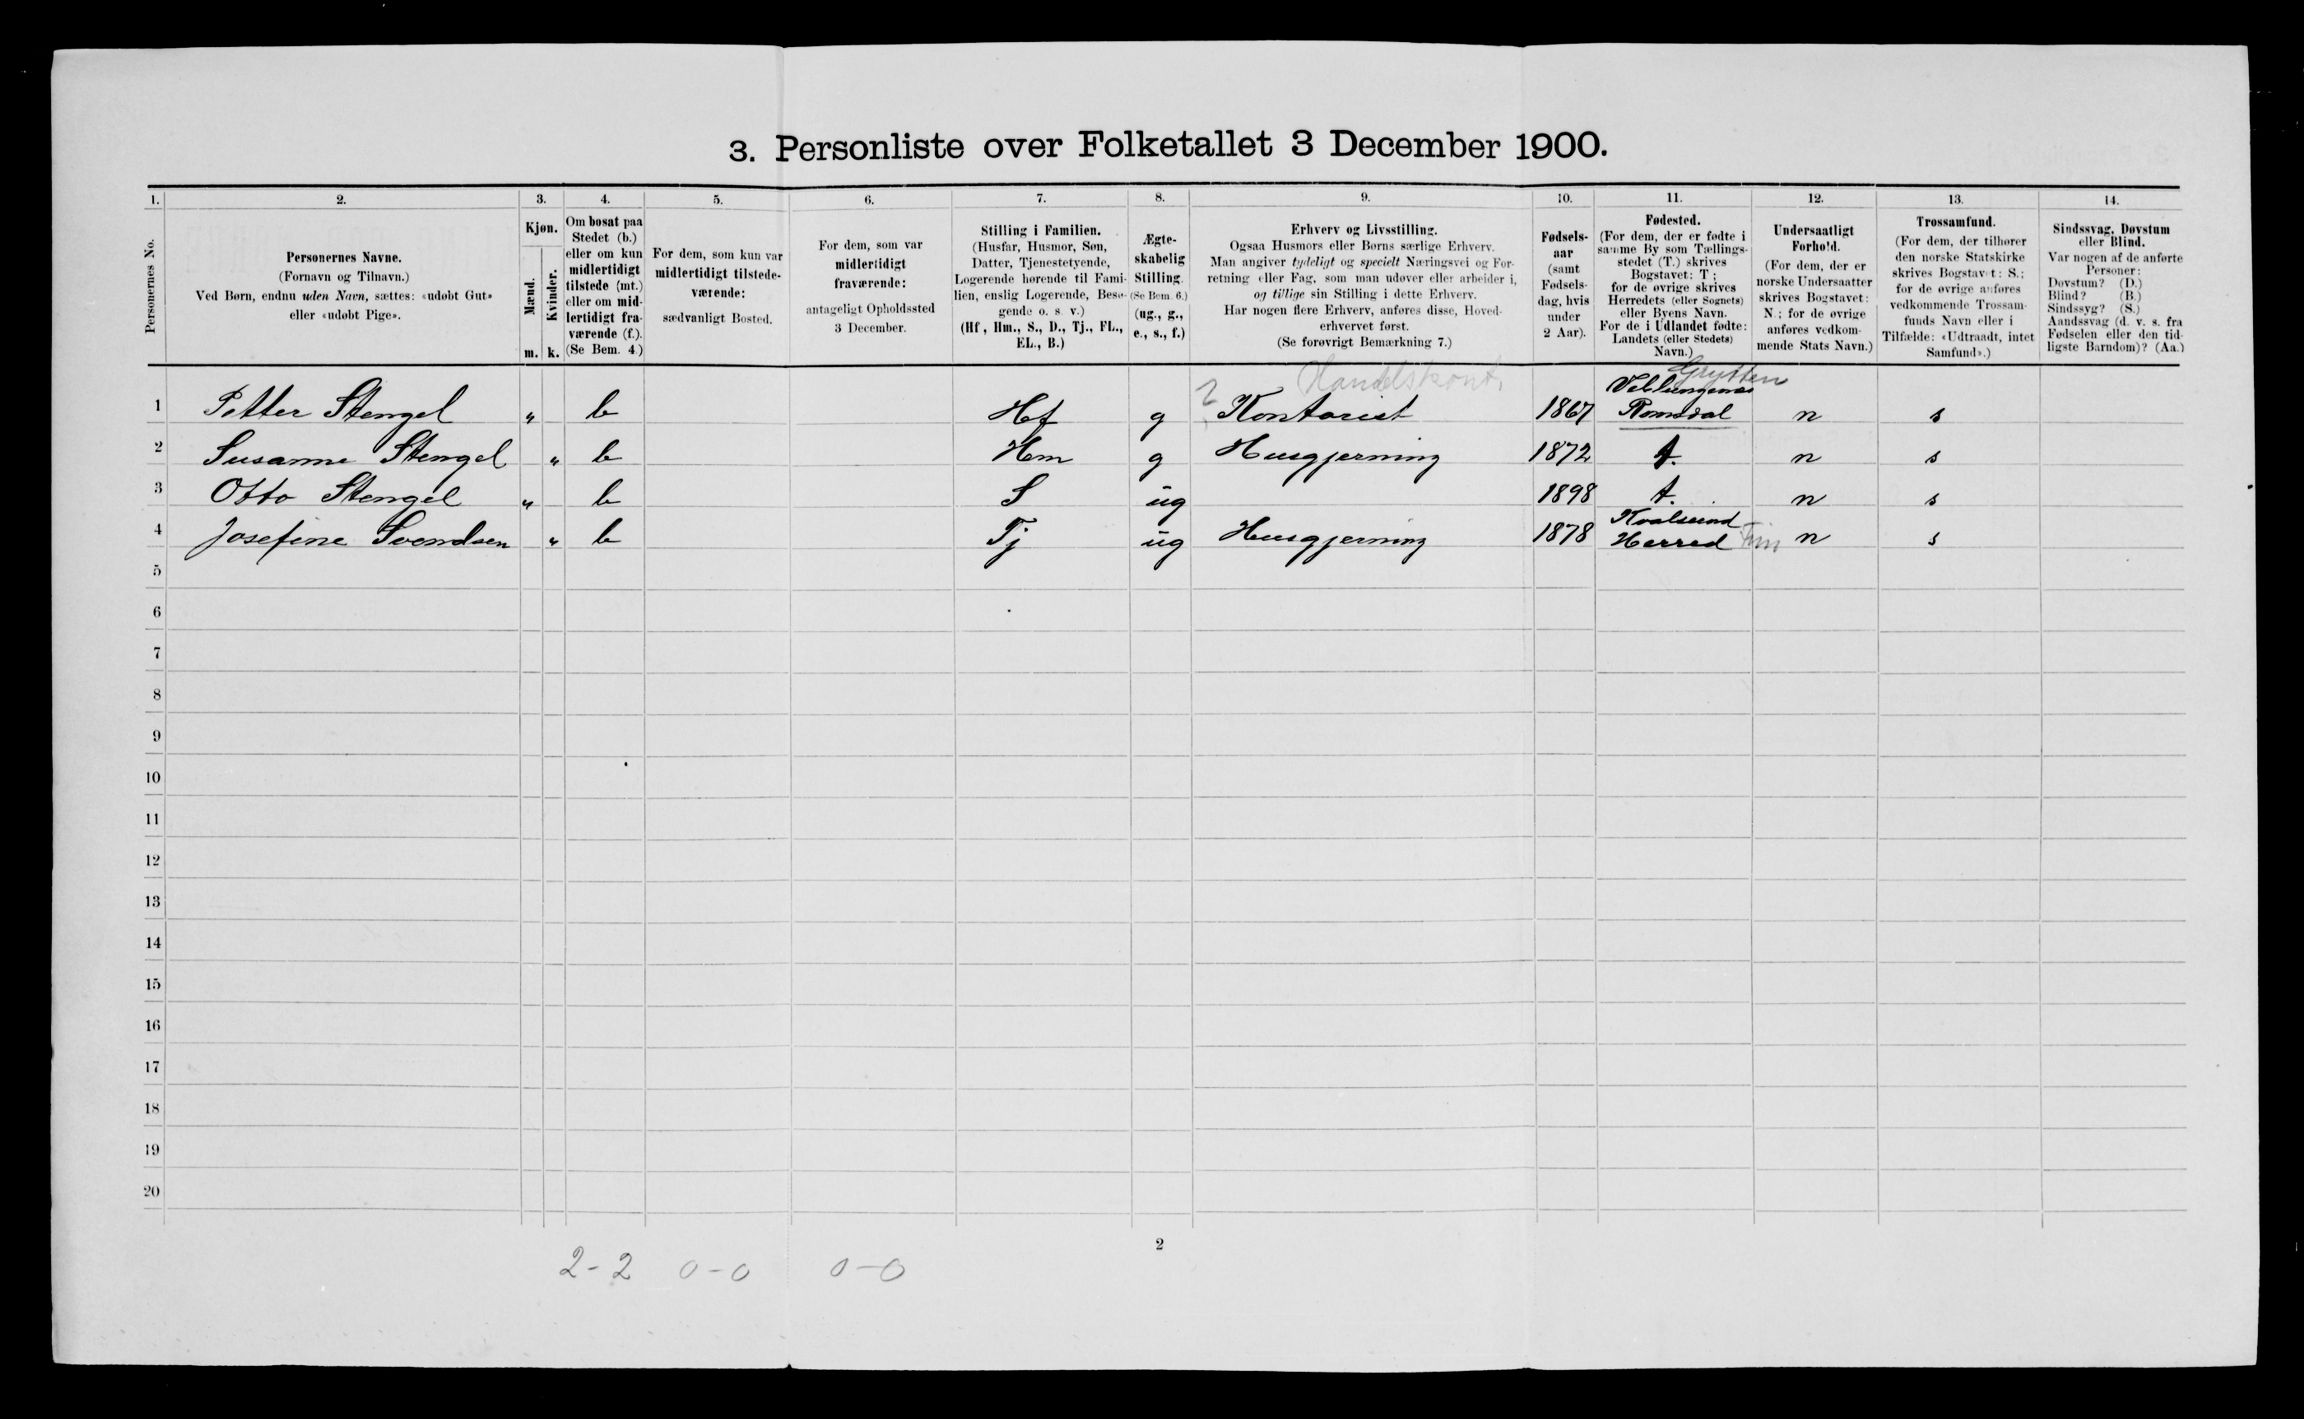 3. Personliste over Folketallet 3 December 1900.
1. 2. 3. 4. 5. 6. 7. 8. 9. 10. 11. 12. 13. 14.
Personernes No.
Personernes Navne.
(Fornavn og Tilnavn.)
Ved Børn, endnu uden Navn, sættes: «udøbt Gut»
eller «udøbt Pige».
Kjøn.
Mænd.
Kvinder.
m. k.
Om bosat paa
Stedet (b.)
eller om kun
midlertidigt
tilstede (mt.)
eller om mid-
lertidigt fra-
værende (f.).
(Se Bem. 4.)
For dem, som kun var
midlertidigt tilstede-
værende:
sædvanligt Bosted.
For dem, som var
midlertidigt
fraværende:
antageligt Opholdssted
3 December.
Stilling i Familien.
(Husfar, Husmor, Søn,
Datter, Tjenestetyende,
Logerende hørende til Fami-
lien, enslig Logerende, Besø-
gende o. s. v.)
(Hf., Hm., S., D., Tj., FL.,
EL., B.)
Ægte-
skabelig
Stilling.
(Se Bem. 6.)
(ug., g.,
e., s., f.)
Erhverv og Livsstilling.
Ogsaa Husmors eller Børns særlige Erhverv.
Man angiver tydeligt og specielt Næringsvei og For-
retning eller Fag, som man udøver eller arbeider i,
og tillige sin Stilling i dette Erhverv.
Har nogen flere Erhverv, anføres disse, Hoved-
erhvervet først.
(Se forøvrigt Bemærkning 7.)
Fødsels-
aar
(samt
Fødsels-
dag, hvis
under
2 Aar).
Fødested.
(For dem, der er fødte i
samme By som Tællings-
stedet (T.) skrives
Bogstavet: T;
for de øvrige skrives
Herredets (eller Sognets)
eller Byens Navn.
For de i Udlandet fødte:
Landets (eller Stedets)
Navn.)
Undersaatligt
Forhold.
(For dem, der er
norske Undersaatter
skrives Bogstavet:
N.; for de øvrige
anføres vedkom-
mende Stats Navn.)
Trossamfund.
(For dem, der tilhører
den norske Statskirke
skrives Bogstavet: S.;
for de øvrige anføres
vedkommende Trossam-
funds Navn eller i
Tilfælde: «Udtraadt, intet
Samfund».)
Sindssvag, Døvstum
eller Blind.
Var nogen af de anførte
Personer:
Døvstum? (D.)
Blind? (B.)
Sindssyg? (S.)
Aandssvag (d. v. s. fra
Fødselen eller den tid-
ligste Barndom)? (Aa.)
? Handelskont. Grytten
Veblungsnes
1 Petter Stengel " b Hf g Kontorist 1867 Romsdal n s
2 Susanne Stengel " b Hm g Husgjerning 1872 t. n s
3 Otto Stengel " b S ug 1898 t. n s
Kvalsund
4 Josefine Svendsen " b Tj ug Husgjerning 1878 Herred Fin n s
5
6
7
8
9
10
11
12
13
14
15
16
17
18
19
20
2
2-2 0-0 0-0